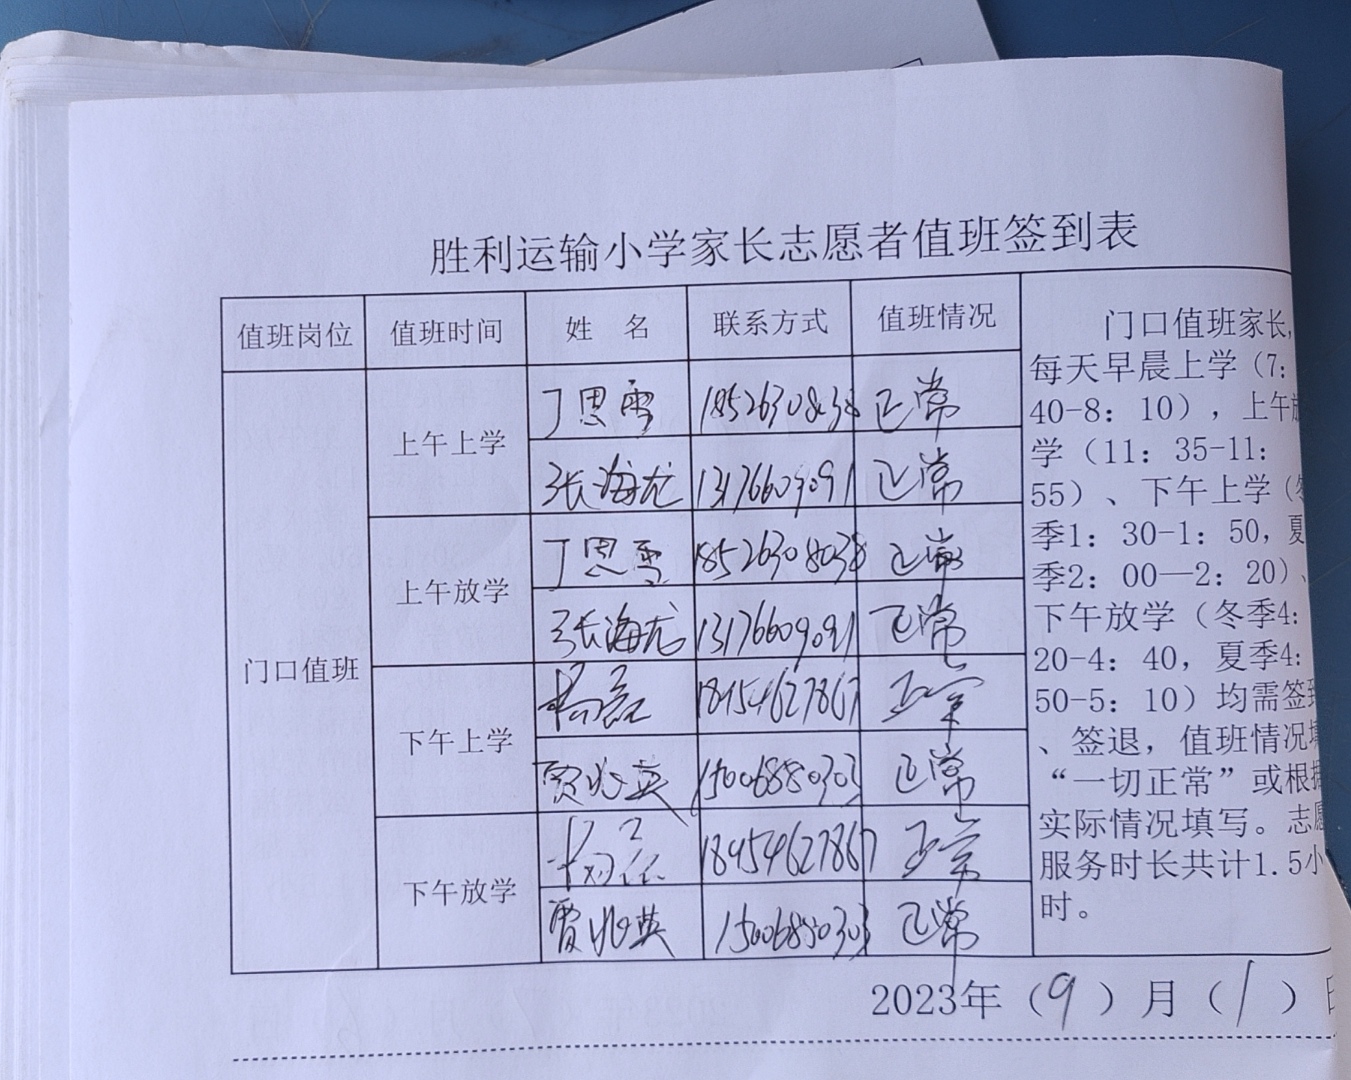 胜利运输小学家长志愿者值班签到表
值班岗位 值班时间 姓 名 联系方式 值班情况
门口值班
上午上学
丁思雪 18526308038 正常
张海龙 13176609091 正常
上午放学
丁思雪 18526308038 正常
张海龙 13176609091 正常
下午上学
杨磊 18454627867 正常
贾兆英 15006880303 正常
下午放学
杨磊 18454627867 正常
贾兆英 15006880303 正常
门口值班家长,
每天早晨上学（7:
40-8: 10），上午放
学（11: 35-11:
55）、下午上学（冬
季1: 30-1: 50，夏
季2: 00—2: 20）、
下午放学（冬季4:
20-4: 40，夏季4:
50-5: 10）均需签到
、签退，值班情况填
“一切正常”或根据
实际情况填写。志愿
服务时长共计1.5小
时。
2023年（9）月（1）日